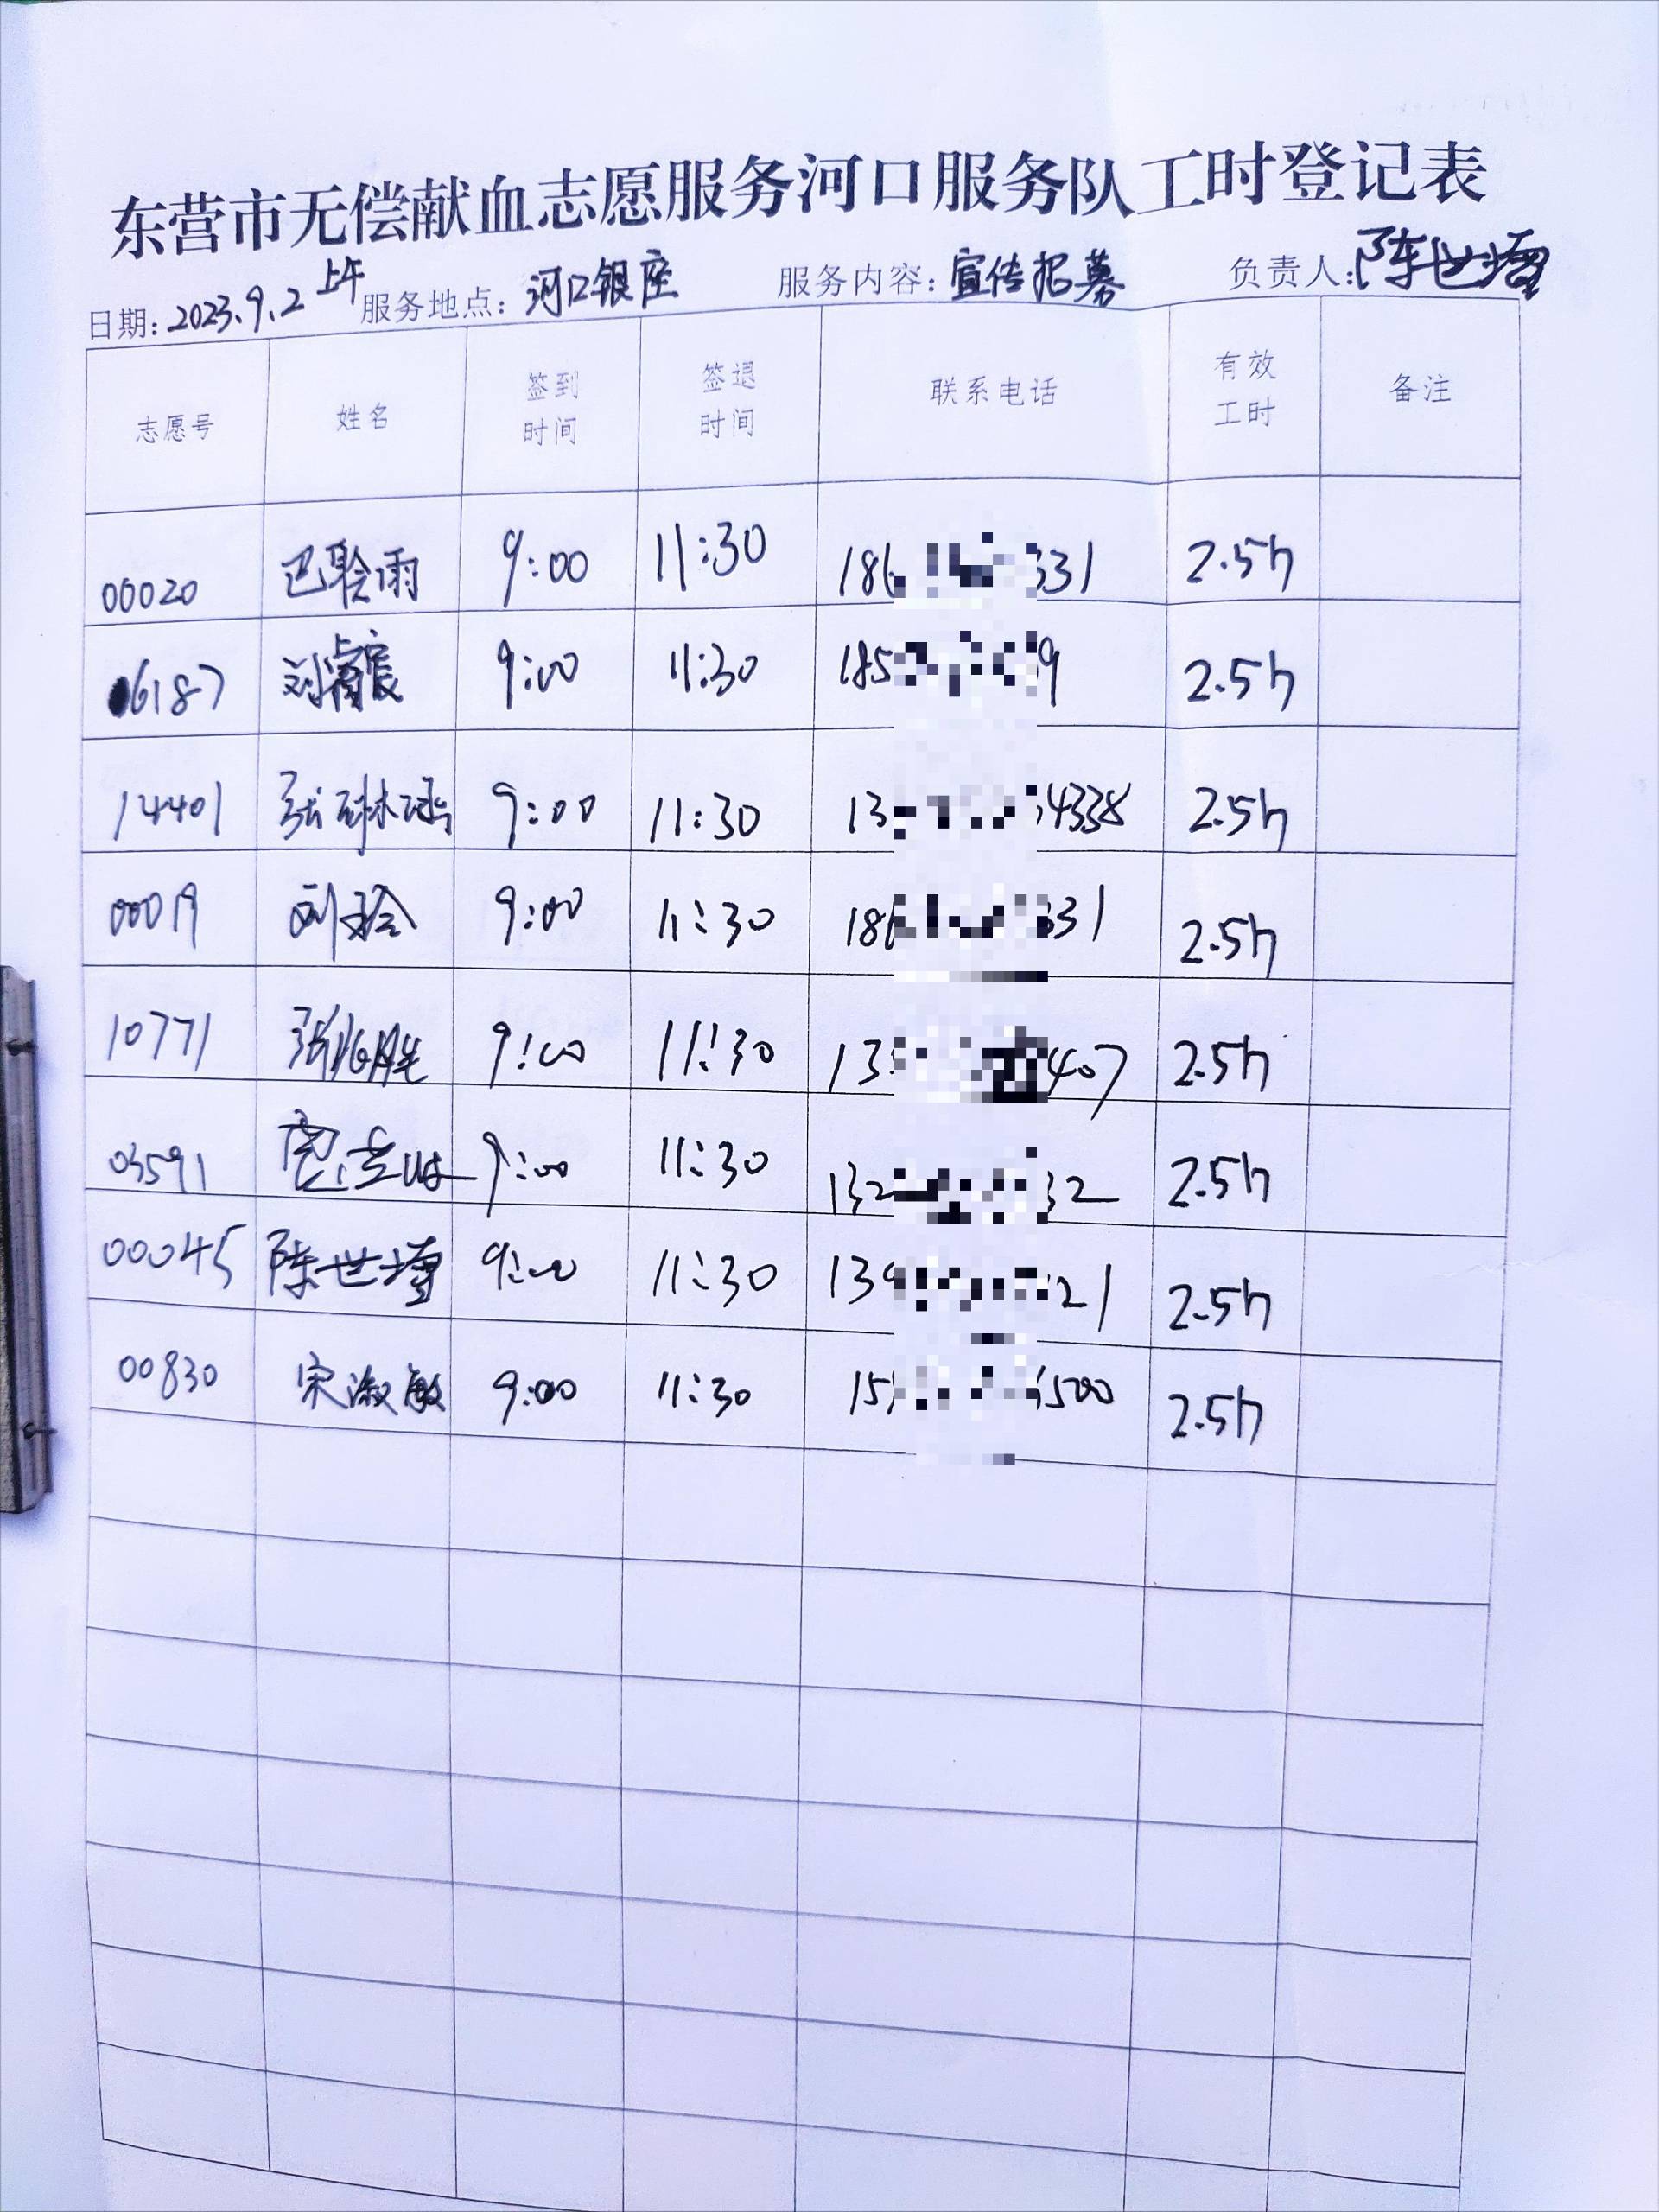 东营市无偿献血志愿服务河口服务队工时登记表
日期：2023.9.2 上午 服务地点：河口银座 服务内容：宣传招募 负责人：陈世
志愿号 姓名 签到时间 签退时间 联系电话 有效工时 备注
00020 巴聆雨 9:00 11:30 186 331 2.5h
06187 刘 9:00 11:30 185 9 2.5h
14401 张琳涵 9:00 11:30 13 4338 2.5h
00019 刘玲 9:00 11:30 186 331 2.5h
10771 张兆胜 9:00 11:30 13 407 2.5h
03591 9:00 11:30 132 32 2.5h
00045 陈世 9:00 11:30 139 21 2.5h
00830 宋淑敏 9:00 11:30 15 500 2.5h